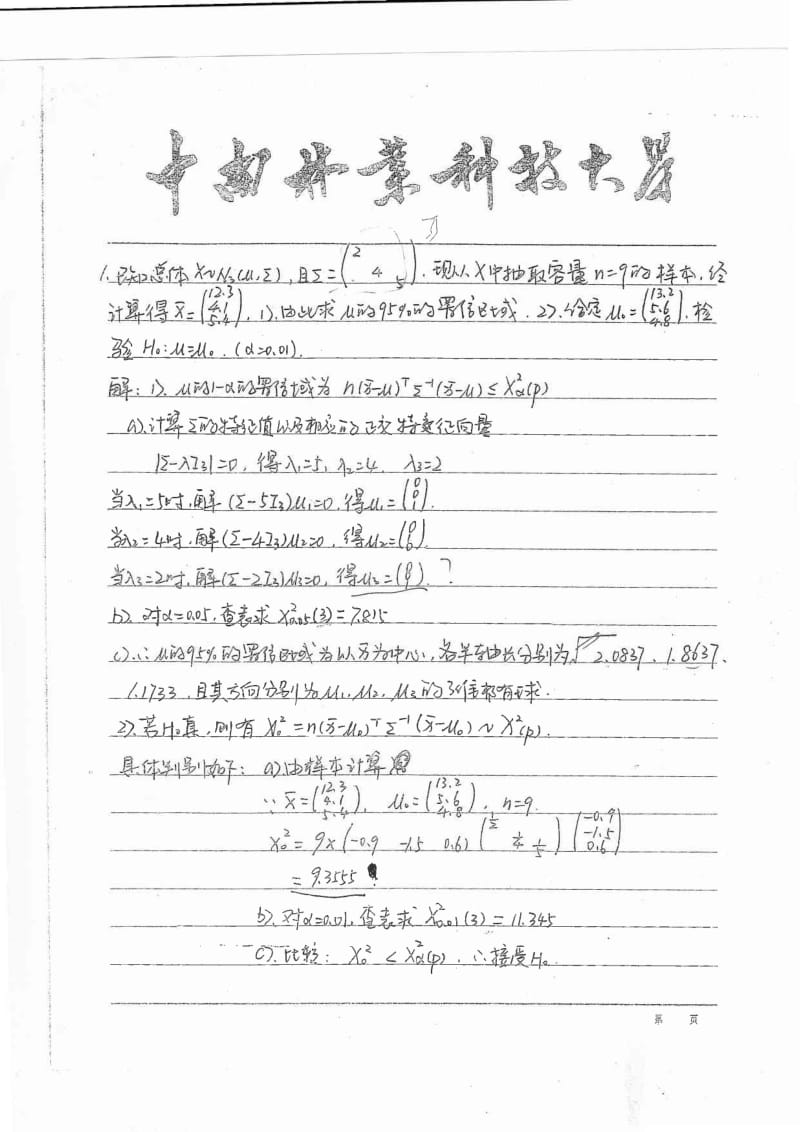 中南林业科技大学
1. 已知总体 X~N₃(μ,Σ), 且Σ=(2 4 5). 现从X中抽取容量n=9的样本, 经
计算得 x̄=(12.3 4.1 5.4), 1). 由此求μ的95%的置信区域. 2). 给定μ₀=(13.2 5.6 4.8), 检
验 H₀:μ=μ₀. (α=0.01).
解: 1). μ的1-α的置信域为 n(x̄-μ)ᵀΣ⁻¹(x̄-μ) ≤ χ²α(p)
a). 计算Σ的特征值以及相应的正交特征向量
|Σ-λI₃|=0, 得λ₁=5, λ₂=4. λ₃=2
当λ₁=5时, 解(Σ-5I₃)μ₁=0, 得μ₁=(0 0 1)
当λ₂=4时, 解(Σ-4I₃)μ₂=0, 得μ₂=
当λ₃=2时, 解(Σ-2I₃)μ₃=0, 得μ₃= ?
b). 对α=0.05, 查表求 χ²0.05(3)=7.815
c). ∴ μ的95%的置信区域为以x̄为中心, 各半轴长分别为 2.0837. 1.8637.
1.1733, 且其方向分别为μ₁, μ₂, μ₃的
2). 若H₀真, 则有 χ₀²=n(x̄-μ₀)ᵀΣ⁻¹(x̄-μ₀)~χ²(p).
具体判别如下: a). 由样本计算
∵ x̄=(12.3 4.1 5.4), μ₀=(13.2 5.6 4.8), n=9.
χ₀²=9×(-0.9 -1.5 0.6)(1/2 1/4 1/5)(-0.9 -1.5 0.6)
=9.3555
b). 对α=0.01, 查表求 χ²0.01(3)=11.345
c). 比较: χ₀² < χ²α(p). ∴接受H₀.
第 页